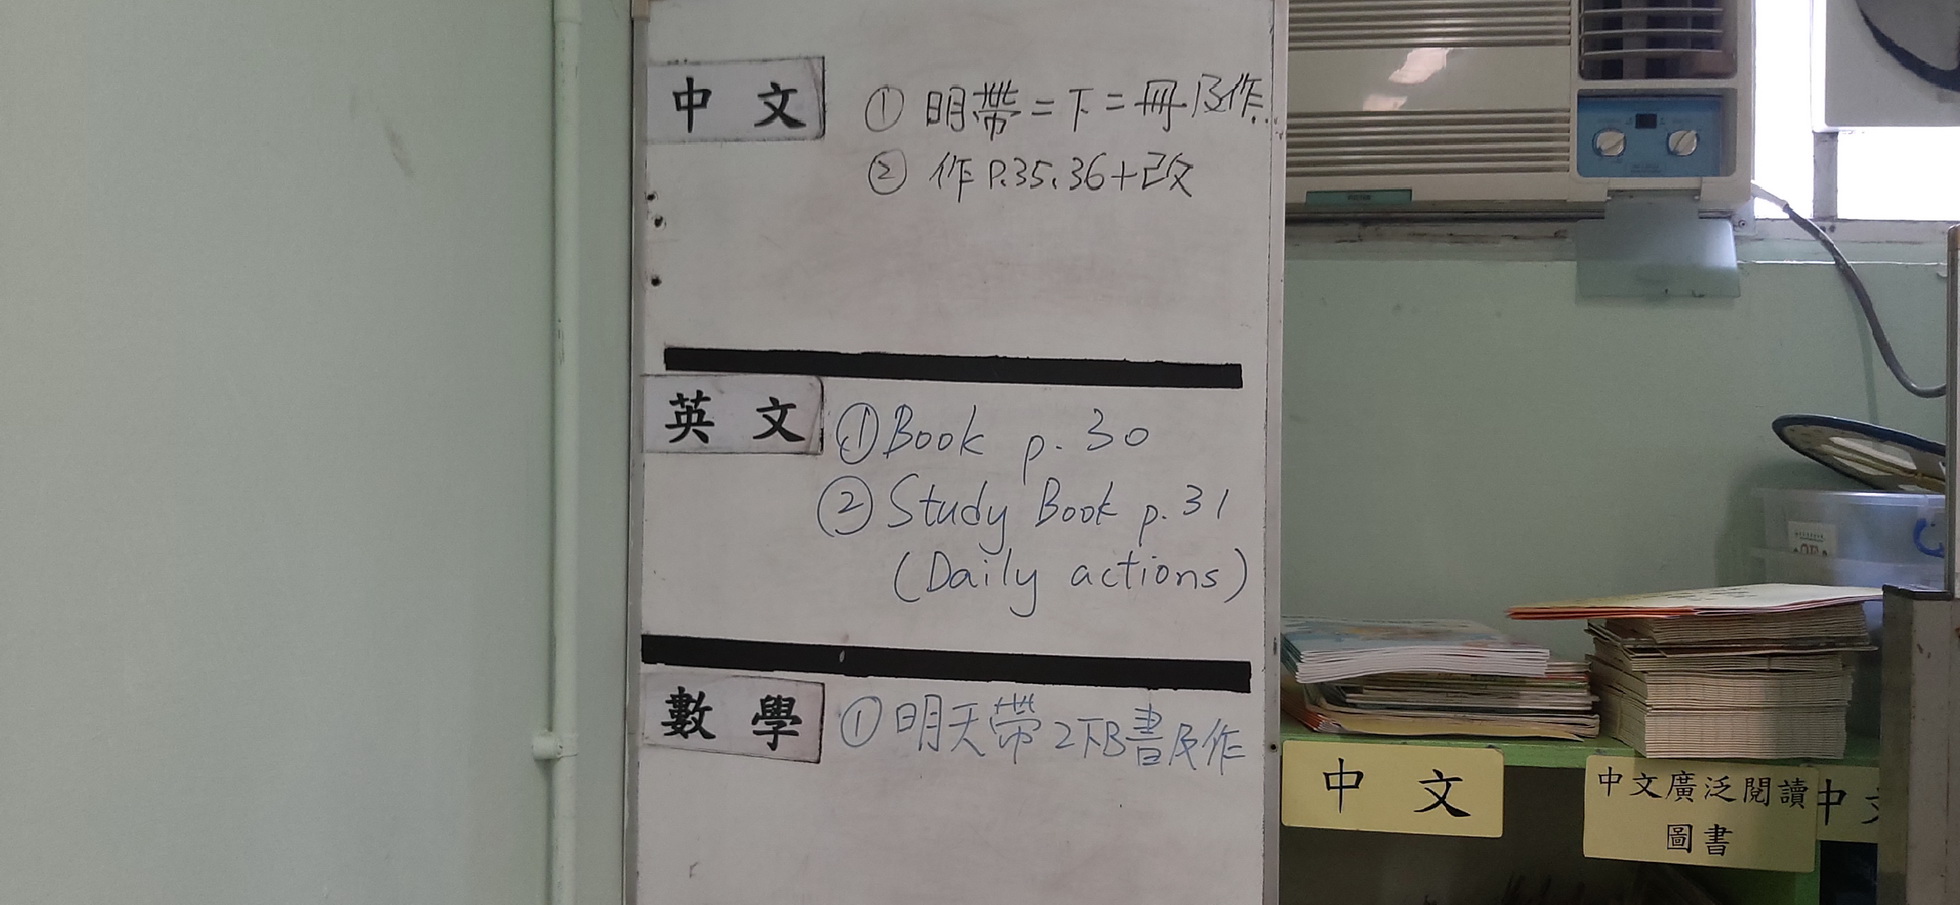 中文
① 明帶二下二冊及作
② 作P.35.36+改
英文
① Book p.30
② Study Book p.31
(Daily actions)
數學
① 明天帶2下B書及作
中文
中文廣泛閱讀
圖書
中文